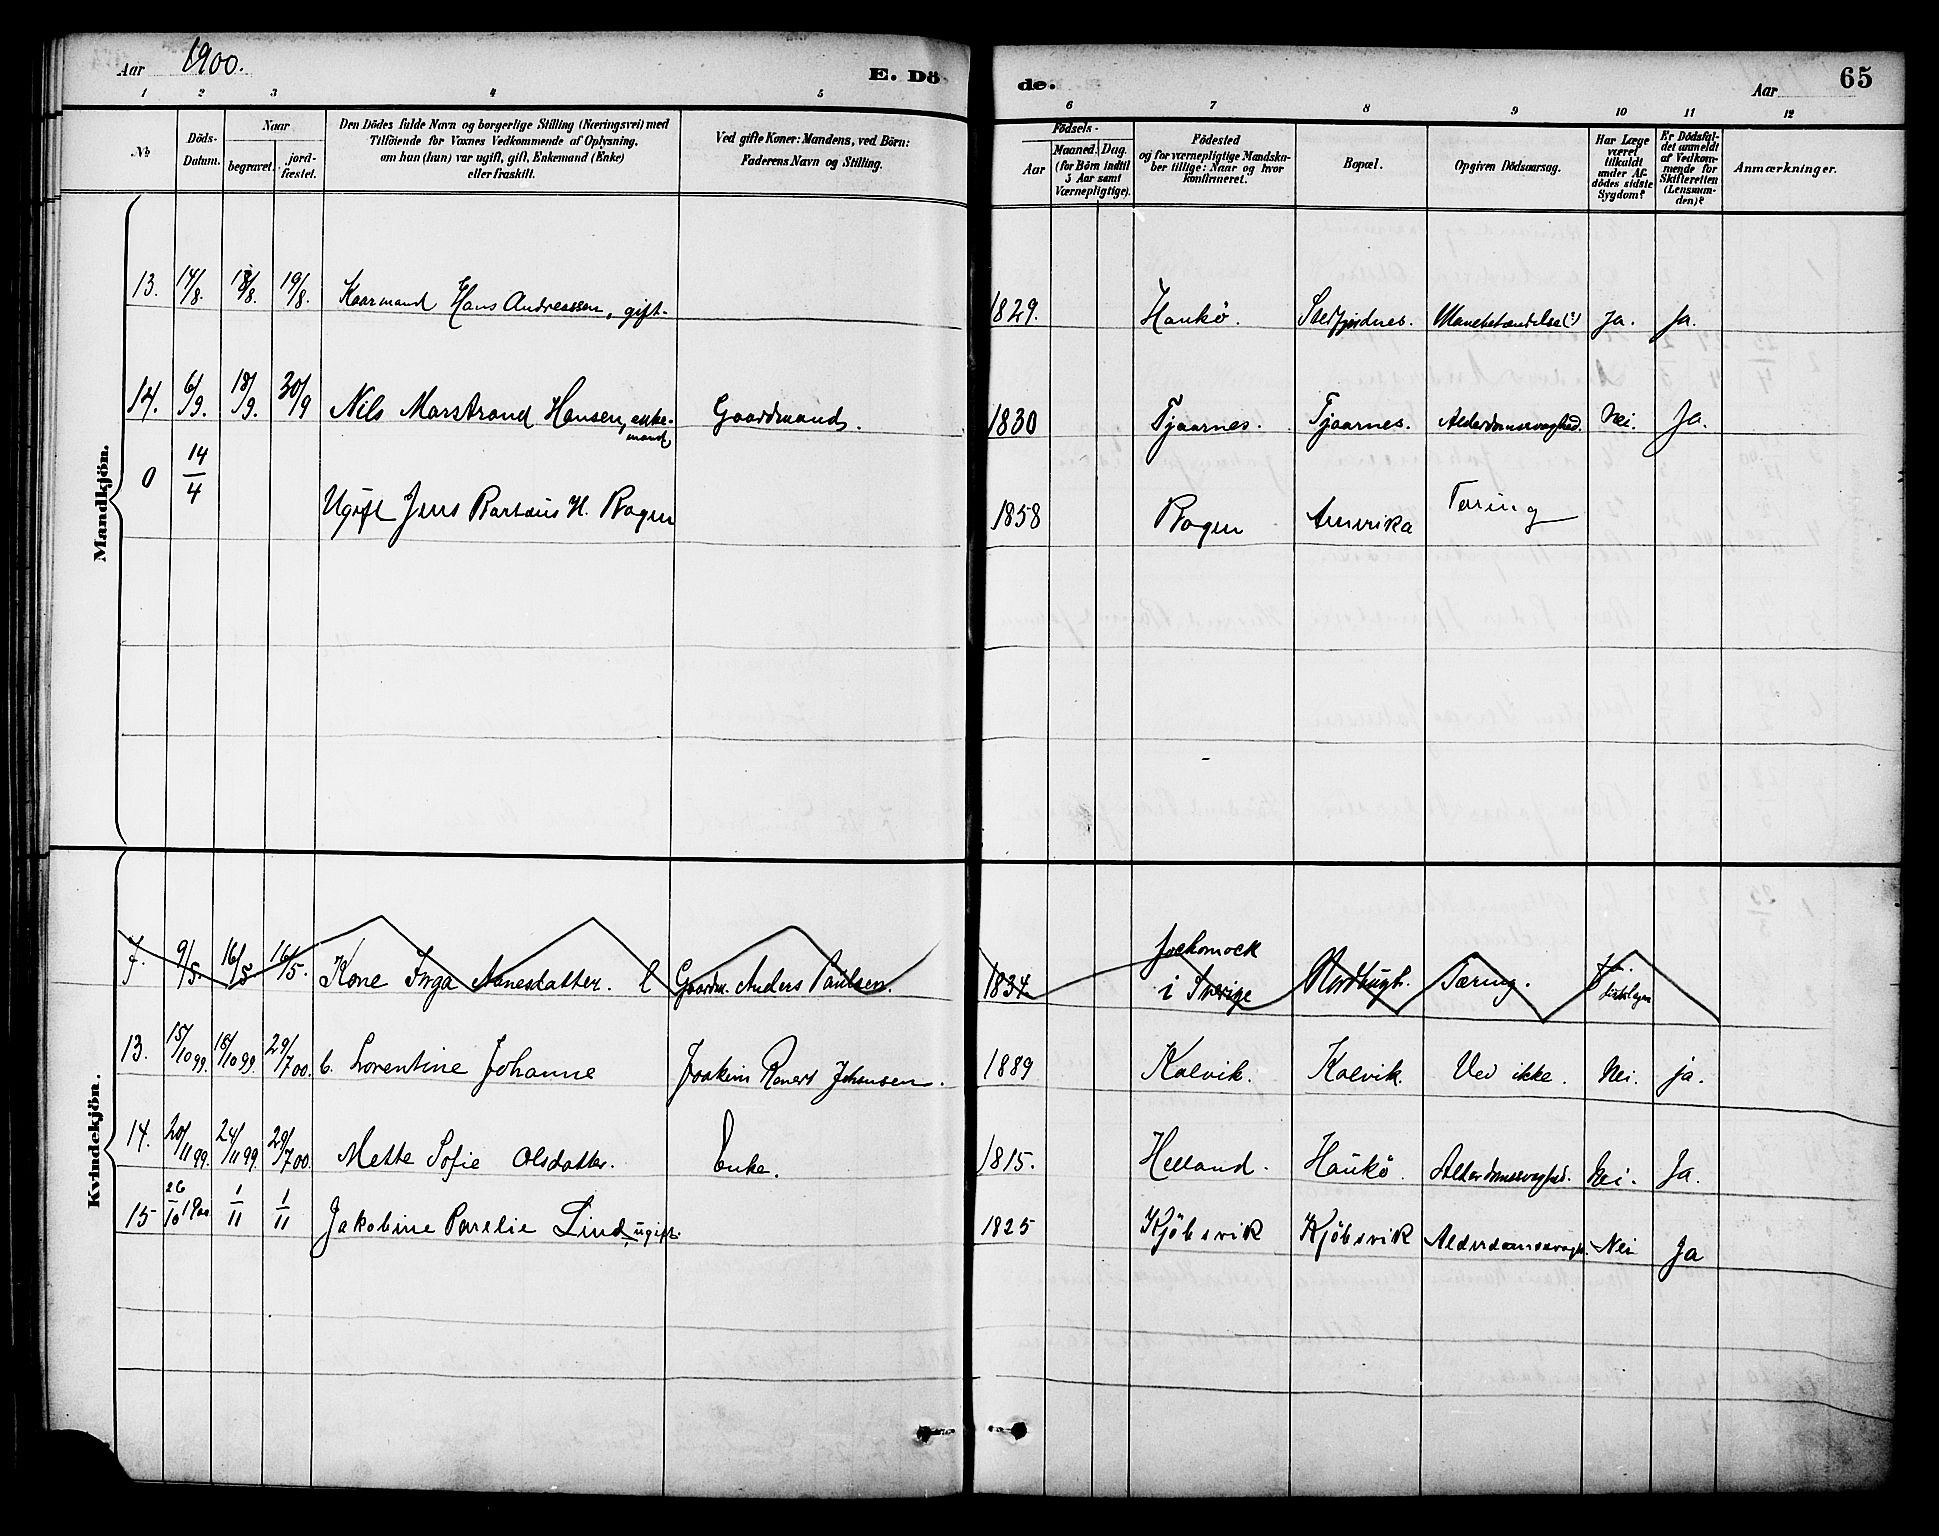 Aar 1900. E. Dö de. Aar 65
1 2 3 4 5 6 7 8 9 10 11 12
No
Döds-Datum.
Naar
begravet.
jord-fæstet.
Den Dödes fulde Navn og borgerlige Stilling (Næringsvei) med
Tilföiende for Voxnes Vedkommende af Oplysning,
om han (hun) var ugift, gift, Enkemand (Enke)
eller fraskilt.
Ved gifte Koner: Mandens, ved Börn:
Faderens Navn og Stilling.
Födsels-
Aar
Maaned. Dag.
(for Börn indtil
5 Aar samt
Værnepligtige).
Födested
og for værnepligtige Mandska-
ber tillige: Naar og hvor
konfirmeret.
Bopæl.
Opgiven Dödsaarsag.
Har Læge
været
tilkaldt
under Af-
dödes sidste
Sygdom?
Er Dödsfal-
det anmeldt
af Vedkom-
mende for
Skifteretten
(Lensman-
den)?
Anmærkninger.
Mandkjön.
13. 14/8. 18/8. 19/8. Kaarmand Hans Andreassen, gift. 1829. Haukö. Ja. Ja.
14. 6/9. 18/9. 30/9 Nils Marstrand Hansen, enke-
mand, Gaardmand. 1830 Tjaarnes. Tjaarnes. Alderdomssvaghed. Nei. Ja.
0 14/4 Ugift Jens H. Bogen 1858 Bogen Amerika Tæring
Kvindekjön.
7. 9/5. 16/5 16/5. Kone Inga Aanesdatter. Gaardm. Anders Paulsen. 1834. Jockomock
i Sverige Tæring.
13. 15/10 99. 18/10 99. 29/7 00. b. Lorentine Johanne Joakim Johansen. 1889 Kalvik. Kalvik. Ved ikke. Nei. ja.
14. 20/11 99. 24/11 99. 29/7 00. Mette Sofie Olsdatter. Enke. 1815. Helland. Haukö. Alderdomssvaghed. Nei. Ja.
15 26/10 1900 1/11 1/11 Jakobine Lind, ugift. 1825 Kjöbsvik Kjöbsvik Alderdomssvagh. Nei Ja